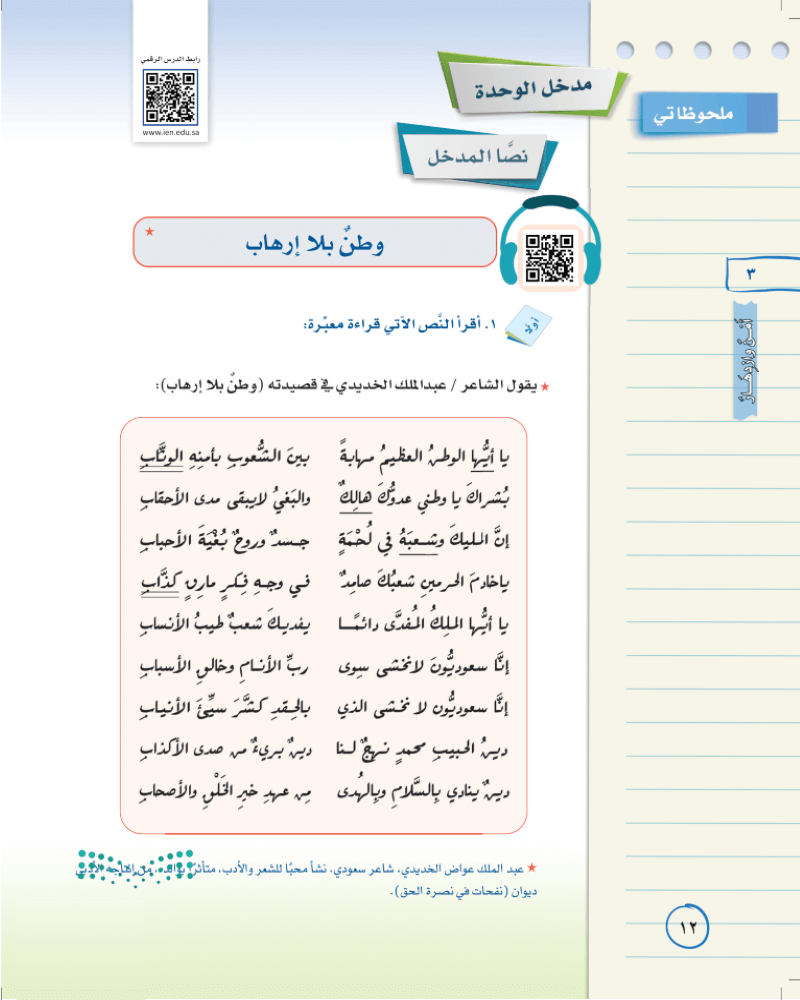 رابط الدرس الرقمي
www.ien.edu.sa
مدخل الوحدة
ملحوظاتي
نصَّا المدخل
وطنٌ بلا إرهاب ★
٣
أولًا
١. أقرأ النَّص الآتي قراءة معبّرة:
أمنٌ وازدهارٌ
★ يقول الشاعر / عبدالملك الخديدي في قصيدته (وطنٌ بلا إرهاب):
يا أيُّها الوطنُ العظيمُ مهابةً بينَ الشُّعوبِ بأمنِهِ الوثَّابِ
بُشراكَ يا وطني عدوُّكَ هالِكٌ والبَغيُ لايبقى مدى الأحقابِ
إنَّ المليكَ وشعبَهُ في لُحْمَةٍ جسدٌ وروحٌ بُغْيَةَ الأحبابِ
ياخادمَ الحرمينِ شعبُكَ صامِدٌ في وجهِ فِكرٍ مارِقٍ كذَّابِ
يا أيُّها الملِكُ المُفدَّى دائمًا يفديكَ شعبٌ طيبُ الأنسابِ
إنَّا سعوديُّونَ لانخشى سِوى ربِّ الأنامِ وخالقِ الأسبابِ
إنَّا سعوديُّون لا نخشى الذي بالحِقدِ كشَّرَ سيِّئَ الأنيابِ
دينُ الحبيبِ محمدٍ نهجٌ لنا دينٌ بريءٌ من صدى الأكذابِ
دينٌ ينادي بِالسَّلامِ وبِالهُدى مِن عهدِ خيرِ الخَلْقِ والأصحابِ
★ عبد الملك عواض الخديدي، شاعر سعودي، نشأ محبًا للشعر والأدب، متأثرًا بوالده، من إنتاجه الأدبي
ديوان (نفحات في نصرة الحق).
١٢